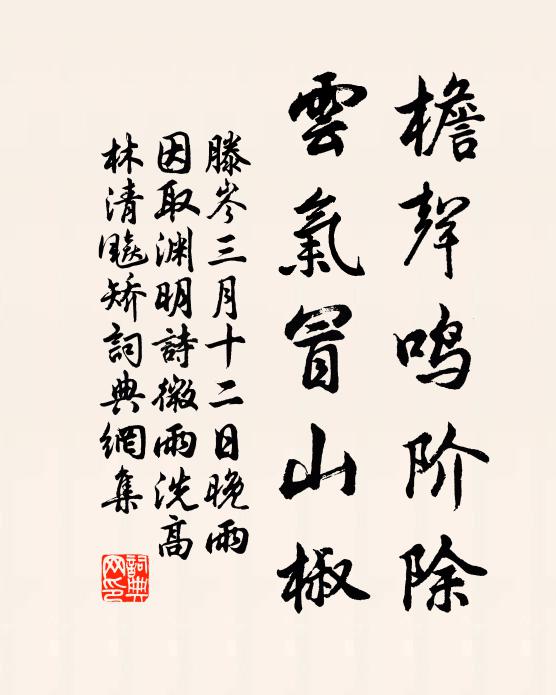 檐声鸣阶除
雲氣冒山椒
滕岑三月十二日晚雨
因取渊明詩微雨洗高
林清飚矫詞典網集
詞典网印